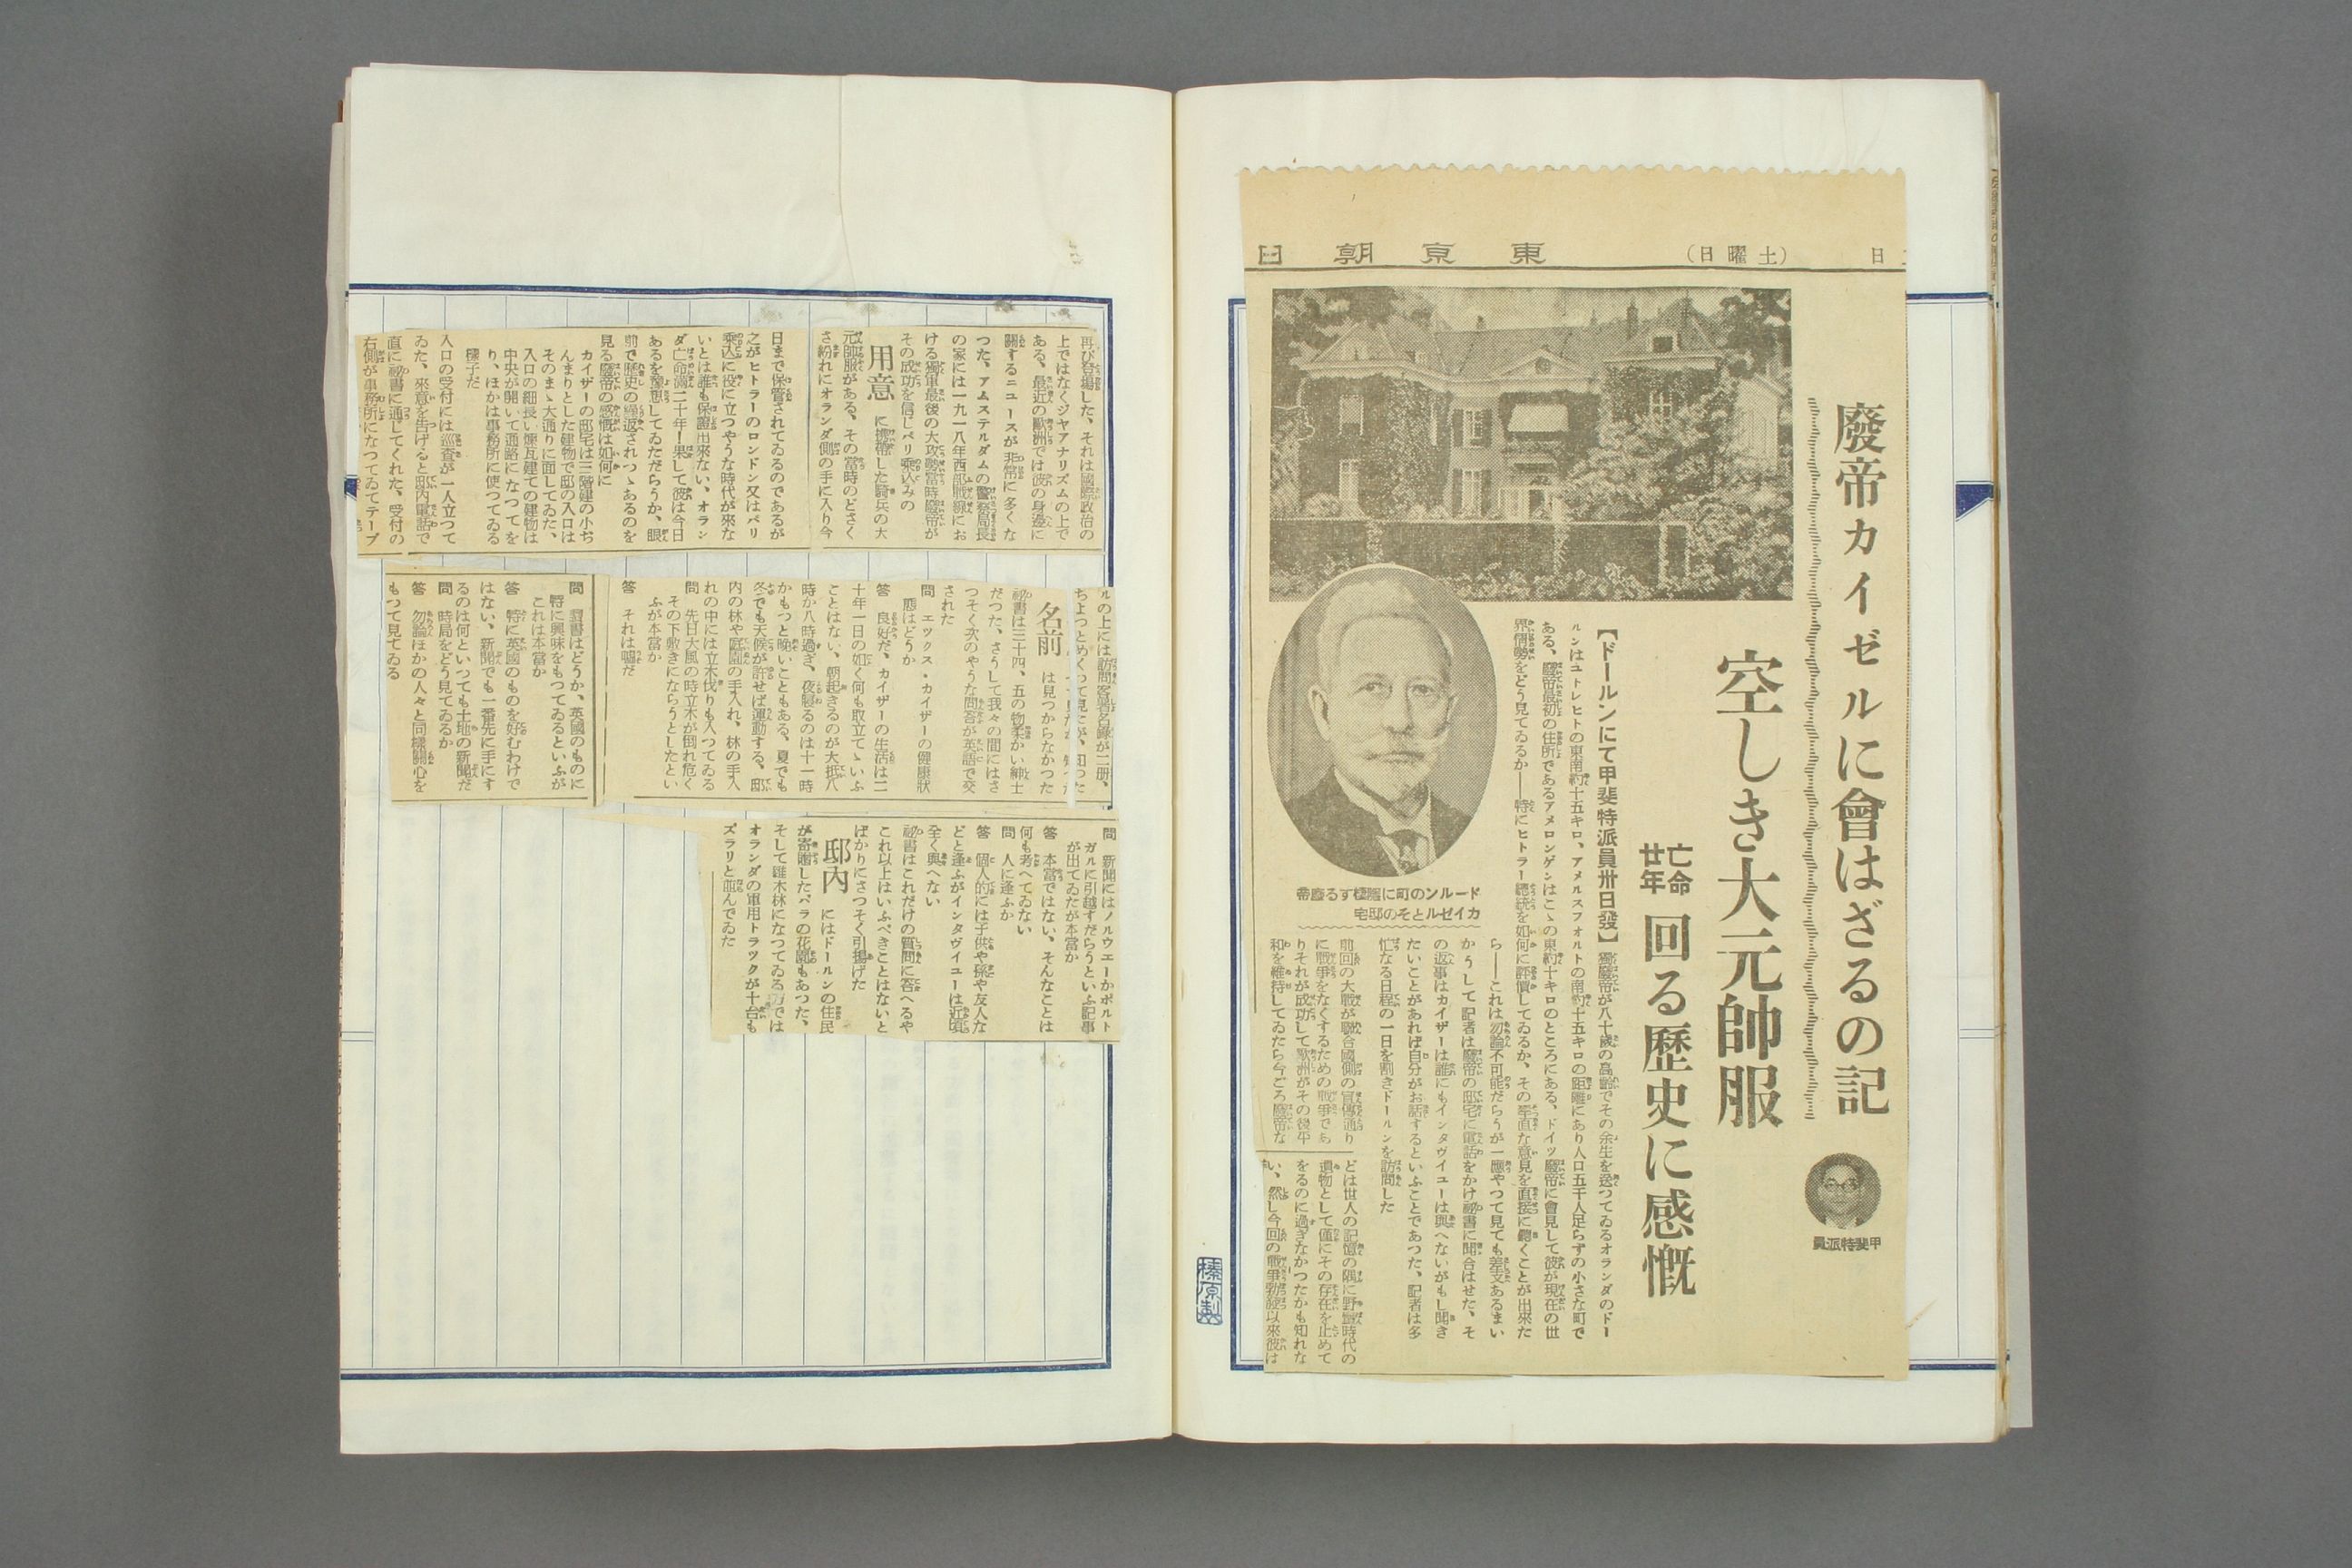 東京朝日
(土曜日)
日
廢帝カイゼルに會はざるの記
空しき大元帥服
亡命
廿年
回る歷史に感慨
甲斐特派員
ドールンの町に隱棲する廢帝
カイゼルとその邸宅
【ドールンにて甲斐特派員卅日發】獨廢帝が八十歲の高齡でその余生を送つてゐるオランダのドー
ルンはユトレヒトの東南約十五キロ、アメルスフオルトの南約十五キロの距離にあり人口五千人足らずの小さな町で
ある、廢帝最初の住所であるアメロンゲンはこゝの東約十キロのところにある、ドイツ廢帝に會見して彼が現在の世
界情勢をどう見てゐるか――特にヒトラー總統を如何に評價してゐるか、その率直な意見を直接に聽くことが出來た
ら――これは勿論不可能だらうが一應やつて見ても差支あるまい
かうして記者は廢帝の邸宅に電話をかけ祕書に問合はせた、そ
の返事はカイザーは誰にもインタヴイユーは與へないがもし聞き
たいことがあれば自分がお話するといふことであつた、記者は多
忙なる日程の一日を割きドールンを訪問した
前回の大戰が聯合國側の宣傳通り
に戰爭をなくするための戰爭であ
りそれが成功して歐洲がその後平
和を維持してゐたら今ごろ廢帝な
どは世人の記憶の隅に野蠻時代の
遺物として僅にその存在を止めて
をるのに過ぎなかつたかも知れな
い、然し今回の戰爭勃發以來彼は
再び登場した、それは國際政治の
上ではなくジヤアナリズムの上で
ある、最近の歐洲では彼の身邊に
關するニユースが非常に多くな
つた、アムステルダムの警察局長
の家には一九一八年西部戰線にお
ける獨軍最後の大攻勢當時廢帝が
その成功を信じパリ乘込みの
用意
に攜帶した騎兵の大
元帥服がある、その當時のどさく
さ紛れにオランダ側の手に入り今
日まで保管されてゐるのであるが
之がヒトラーのロンドン又はパリ
乘込に役に立つやうな時代が來な
いとは誰も保證出來ない、オラン
ダ亡命滿二十年!果して彼は今日
あるを豫想してゐただらうか、眼
前で歷史の繰返されつゝあるのを
見る廢帝の感慨は如何に
カイザーの邸宅は三階建の小ぢ
んまりとした建物で邸の入口は
そのまゝ大通りに面してゐた、
入口の細長い煉瓦建ての建物は
中央が開いて通路になつてを
り、ほかは事務所に使つてゐる
樣子だ
入口の受付には巡査が一人立つて
ゐた、來意を告げると邸內電話で
直に祕書に通じてくれた、受付の
右側が事務所になつてゐてテーブ
ルの上には訪問客署名錄が二冊、
ちよつとめくつて見たが、知つた
名前
は見つからなかつた
祕書は三十四、五の物柔かい紳士
だつた、さうして我々の間にはさ
つそく次のやうな問答が英語で交
された
問 エツクス・カイザーの健康狀
態はどうか
答 良好だ、カイザーの生活は二
十年一日の如く何も取立てゝいふ
ことはない、朝起きるのが大抵八
時か八時過ぎ、夜寢るのは十一時
かもつと晚いこともある、夏でも
冬でも天候が許せば運動する、邸
內の林や庭園の手入れ、林の手入
れの中には立木伐りも入つてゐる
問 先日大風の時立木が倒れ危く
その下敷きにならうとしたとい
ふが本當か
答 それは噓だ
問 讀書はどうか、英國のものに
特に興味をもつてゐるといふが
これは本當か
答 特に英國のものを好むわけで
はない、新聞でも一番先に手にす
るのは何といつても土地の新聞だ
問 時局をどう見てゐるか
答 勿論ほかの人々と同樣關心を
もつて見てゐる
問 新聞にはノルウエーかポルト
ガルに引越すだらうといふ記事
が出てゐたが本當か
答 本當ではない、そんなことは
何も考へてゐない
問 人に逢ふか
答 個人的には子供や孫や友人な
どと逢ふがインタヴイユーは近頃
全く與へない
祕書はこれだけの質問に答へるや
これ以上はいふべきことはないと
ばかりにさつそく引揚げた
邸內
にはドールンの住民
が寄贈したバラの花園もあつた、
そして雜木林になつてゐる方では
オランダの軍用トラツクが十台も
ズラリと並んでゐた
榛原製